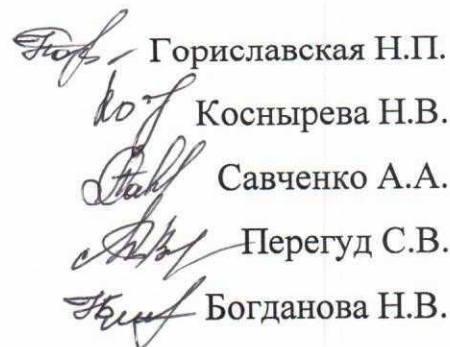 Гориславская Н.П.
Коснырева Н.В.
Савченко А.А.
Перегуд С.В.
Богданова Н.В.